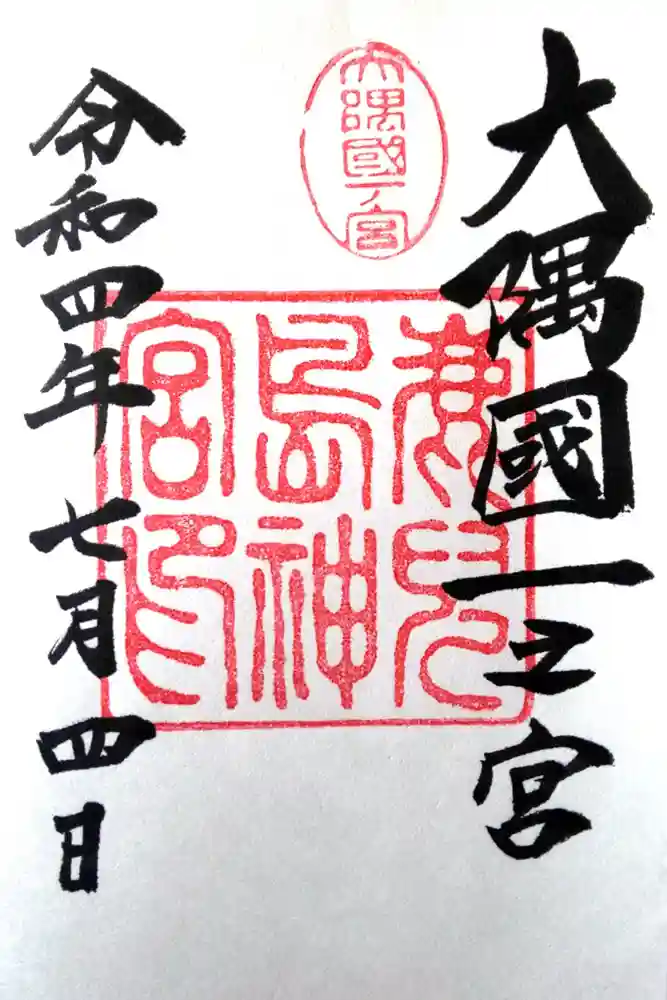 大隅國一之宮
大隅國一ノ宮
鹿兒
島神
宮印
令和四年七月四日